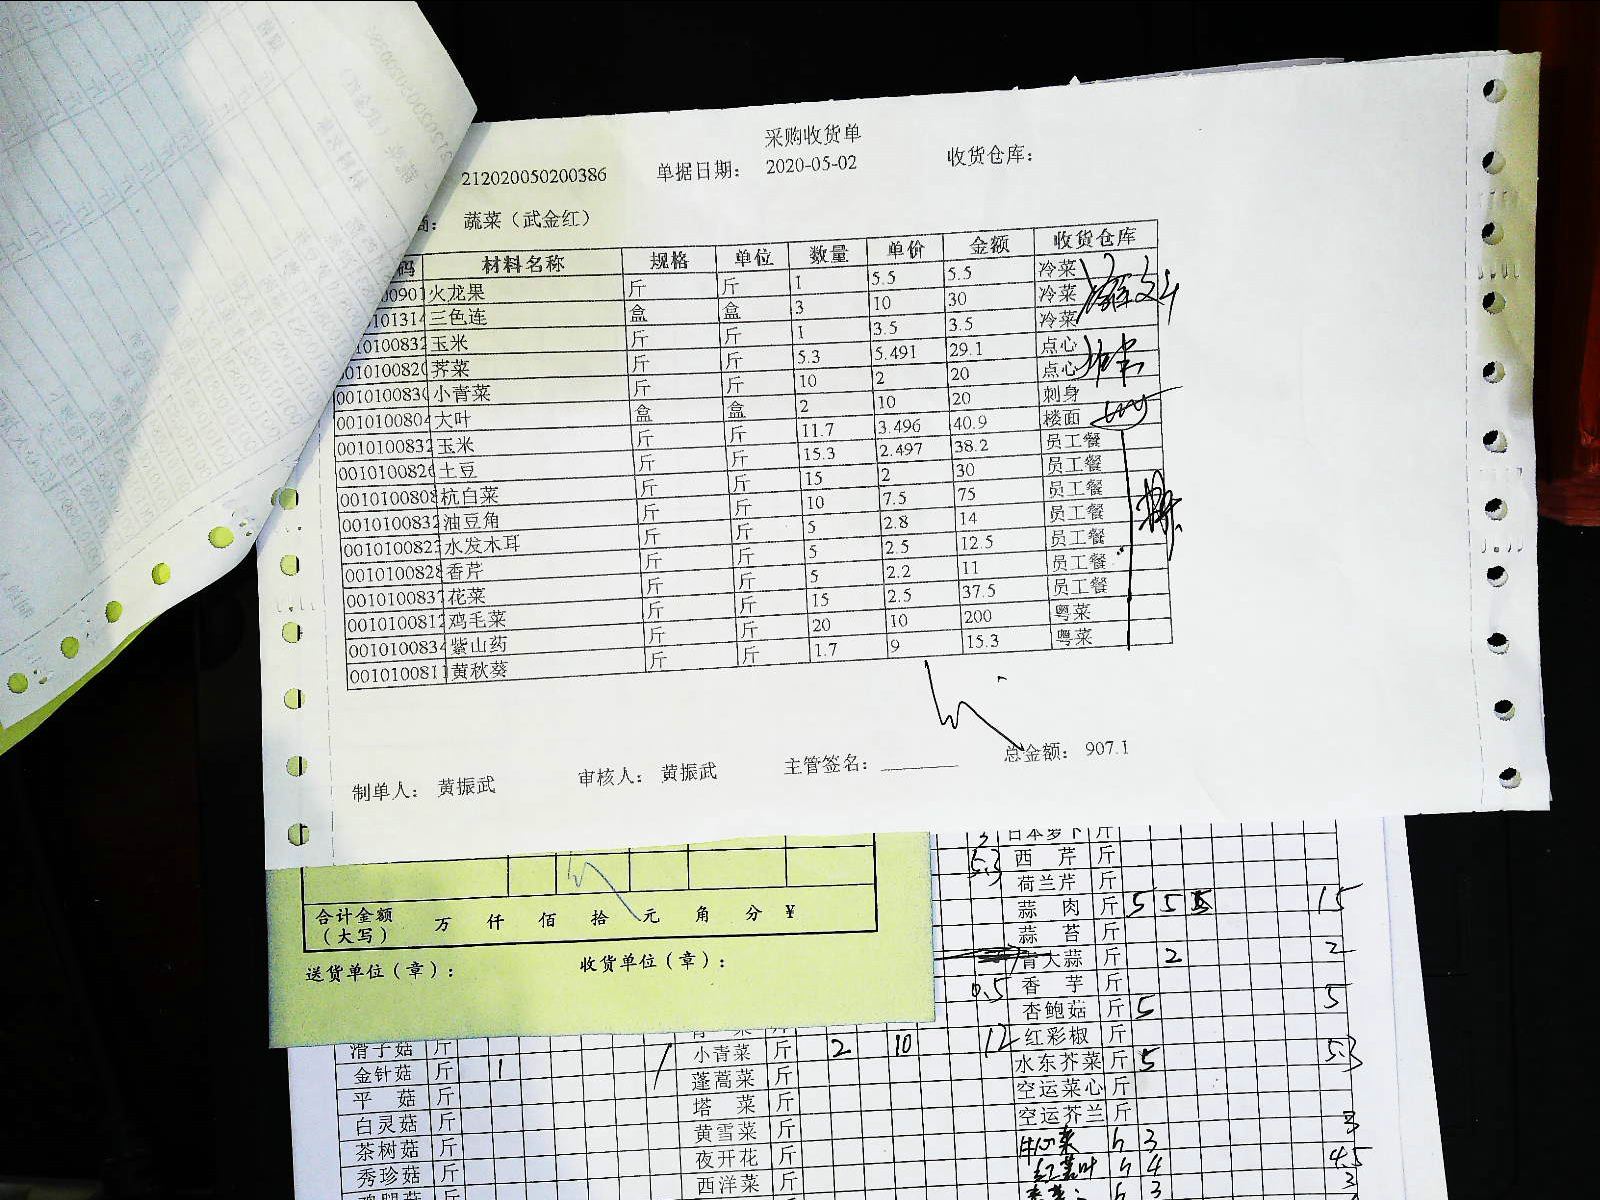 采购收货单
212020050200386 单据日期： 2020-05-02 收货仓库：
商： 蔬菜（武金红）
码 材料名称 规格 单位 数量 单价 金额 收货仓库
00901 火龙果 斤 斤 1 5.5 5.5 冷菜
101314 三色连 盒 盒 3 10 30 冷菜
010100832 玉米 斤 斤 1 3.5 3.5 冷菜
0010100820 荠菜 斤 斤 5.3 5.491 29.1 点心
0010100830 小青菜 斤 斤 10 2 20 点心
0010100804 大叶 盒 盒 2 10 20 刺身
0010100832 玉米 斤 斤 11.7 3.496 40.9 楼面
0010100826 土豆 斤 斤 15.3 2.497 38.2 员工餐
0010100808 杭白菜 斤 斤 15 2 30 员工餐
0010100832 油豆角 斤 斤 10 7.5 75 员工餐
0010100823 水发木耳 斤 斤 5 2.8 14 员工餐
0010100828 香芹 斤 斤 5 2.5 12.5 员工餐
0010100837 花菜 斤 斤 5 2.2 11 员工餐
0010100812 鸡毛菜 斤 斤 15 2.5 37.5 员工餐
0010100834 紫山药 斤 斤 20 10 200 粤菜
0010100811 黄秋葵 斤 斤 1.7 9 15.3 粤菜
制单人： 黄振武 审核人： 黄振武 主管签名： 总金额： 907.1
日本萝卜 斤
5.3 西芹 斤
荷兰芹 斤
蒜肉 斤 5 5 5 15
蒜苔 斤
青大蒜 斤 2 2
0.5 香芋 斤
杏鲍菇 斤 5 5
红彩椒 斤
水东芥菜 斤 5 5.3
空运菜心 斤
空运芥兰 斤
3
牛心菜 3
红苋叶 4 4.5
3 3
合计金额（大写） 万 仟 佰 拾 元 角 分 ¥
送货单位（章）： 收货单位（章）：
滑子菇 斤
金针菇 斤 1 1
平菇 斤
白灵菇 斤
茶树菇 斤
秀珍菇 斤
小青菜 斤 2 10 12
蓬蒿菜 斤
塔菜 斤
黄雪菜 斤
夜开花 斤
西洋菜 斤